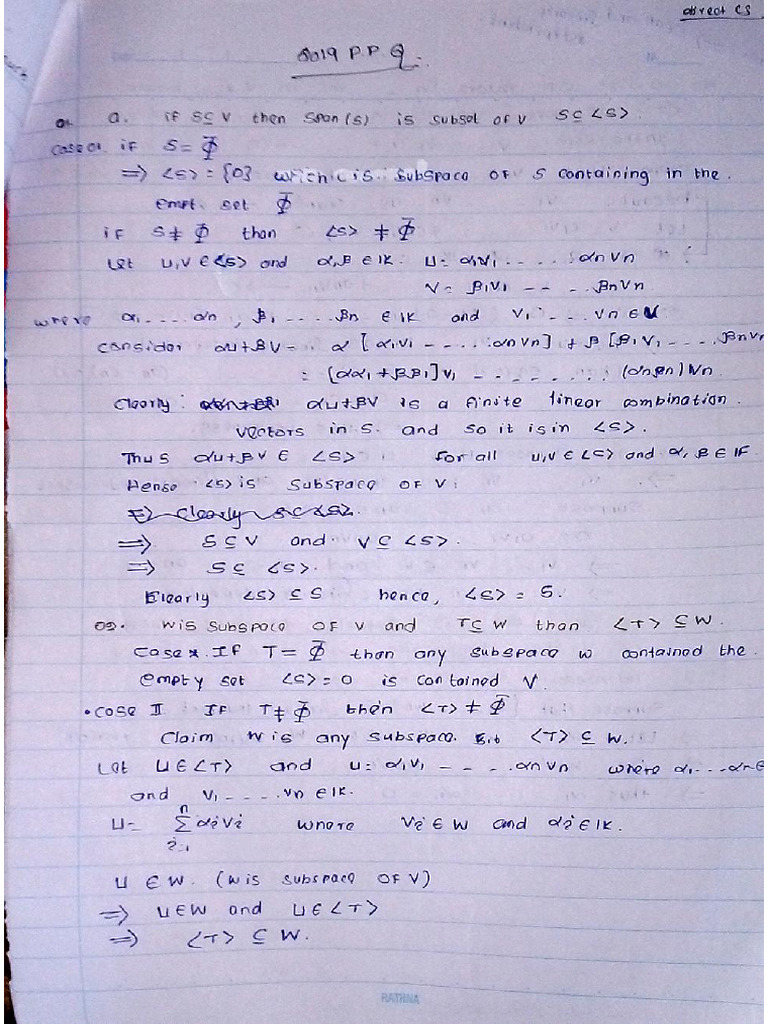 direct CS
2019 P.P.Q.
a. if S⊆V then Span(s) is subset of V S⊆<S>
Case 01 if S = Φ
⇒ <S> = {0} which is subspace of S containing in the
empt. set Φ
if S ≠ Φ than <S> ≠ Φ
Let u,v ∈ <S> and α,β ∈ IK. u = α1v1 ..... αnvn
v = β1v1 -- .. βnvn
where α1....αn, β1.....βn ∈ IK and v1....vn ∈ V
consider αu+βv = α[α1v1 -.....αnvn] + β[β1v1.....βnvn
= [αα1+ββ1]v1 -------- (αnβn)vn
Clearly: αu+βv is a finite linear combination.
vectors in S. and so it is in <S>.
Thus αu+βv ∈ <S> for all u,v ∈ <S> and α, β ∈ IF
Hense <S> is subspace of V.
⇒ Clearly S⊂<S>.
⇒ S⊆V and V⊆<S>.
⇒ S⊆<S>.
Elearly <S> ⊆ S hence, <S> = S.
02. W is subspace of V and T⊆W than <T> ⊆ W.
Case If T = Φ than any subspace w contained the.
empty set <S> = 0 is contained V.
• case II If T ≠ Φ then <T> ≠ Φ
Claim W is any subspace. s.t <T> ⊆ W.
Let u ∈ <T> and u = α1v1 ---..αnvn where α1...αn∈
and v1----vn ∈ IK.
u = n Σ i=1 αivi where vi ∈ W and αi ∈ IK.
u ∈ W. (W is subspace of V)
⇒ u∈W and u∈<T>
⇒ <T> ⊆ W.
RATHNA